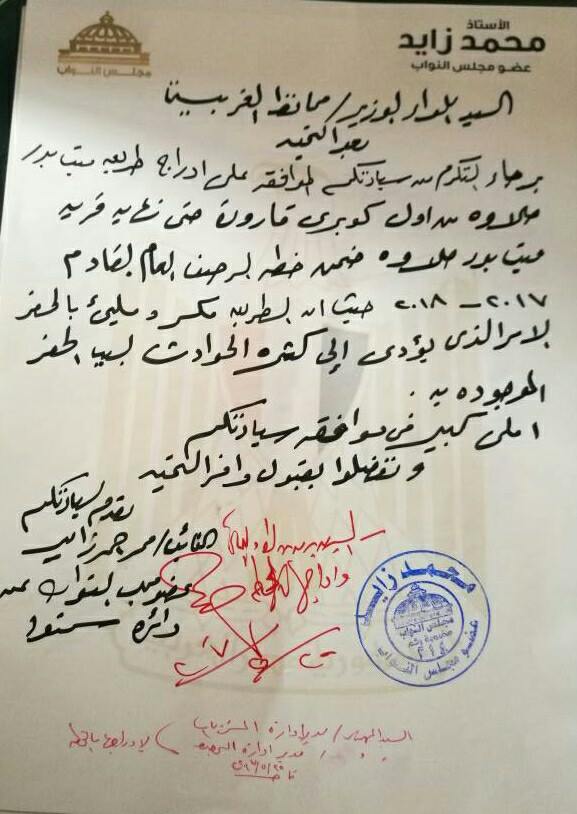 الأستاذ
محمد زايد
عضو مجلس النواب
مجلس النواب
السيد اللواء الوزير / محافظ الغربية
بعد التحية
برجاء التكرم من سيادتكم الموافقة على ادراج طريق ميت بدر
حلاوه من اول كوبرى قارون حتى نهايه قريه
ميت بدر حلاوه ضمن خطه الرصف العام القادم
٢٠١٧ - ٢٠١٨ حيث ان الطريق مكسر و مليئ بالحفر
الامر الذى يؤدى إلى كثره الحوادث بسبب الحفر
الموجوده به .
املى كبير فى موافقه سيادتكم
و تفضلوا بقبول وافر التحيه
مقدم لسيادتكم
النائب / محمد زايد
عضو مجلس النواب عن
دائره سمنود
محمد زايد
مجلس النواب
عضوية رقم
عضو مجلس النواب
السيد المهندس / مدير ادارة
مدير ادارة